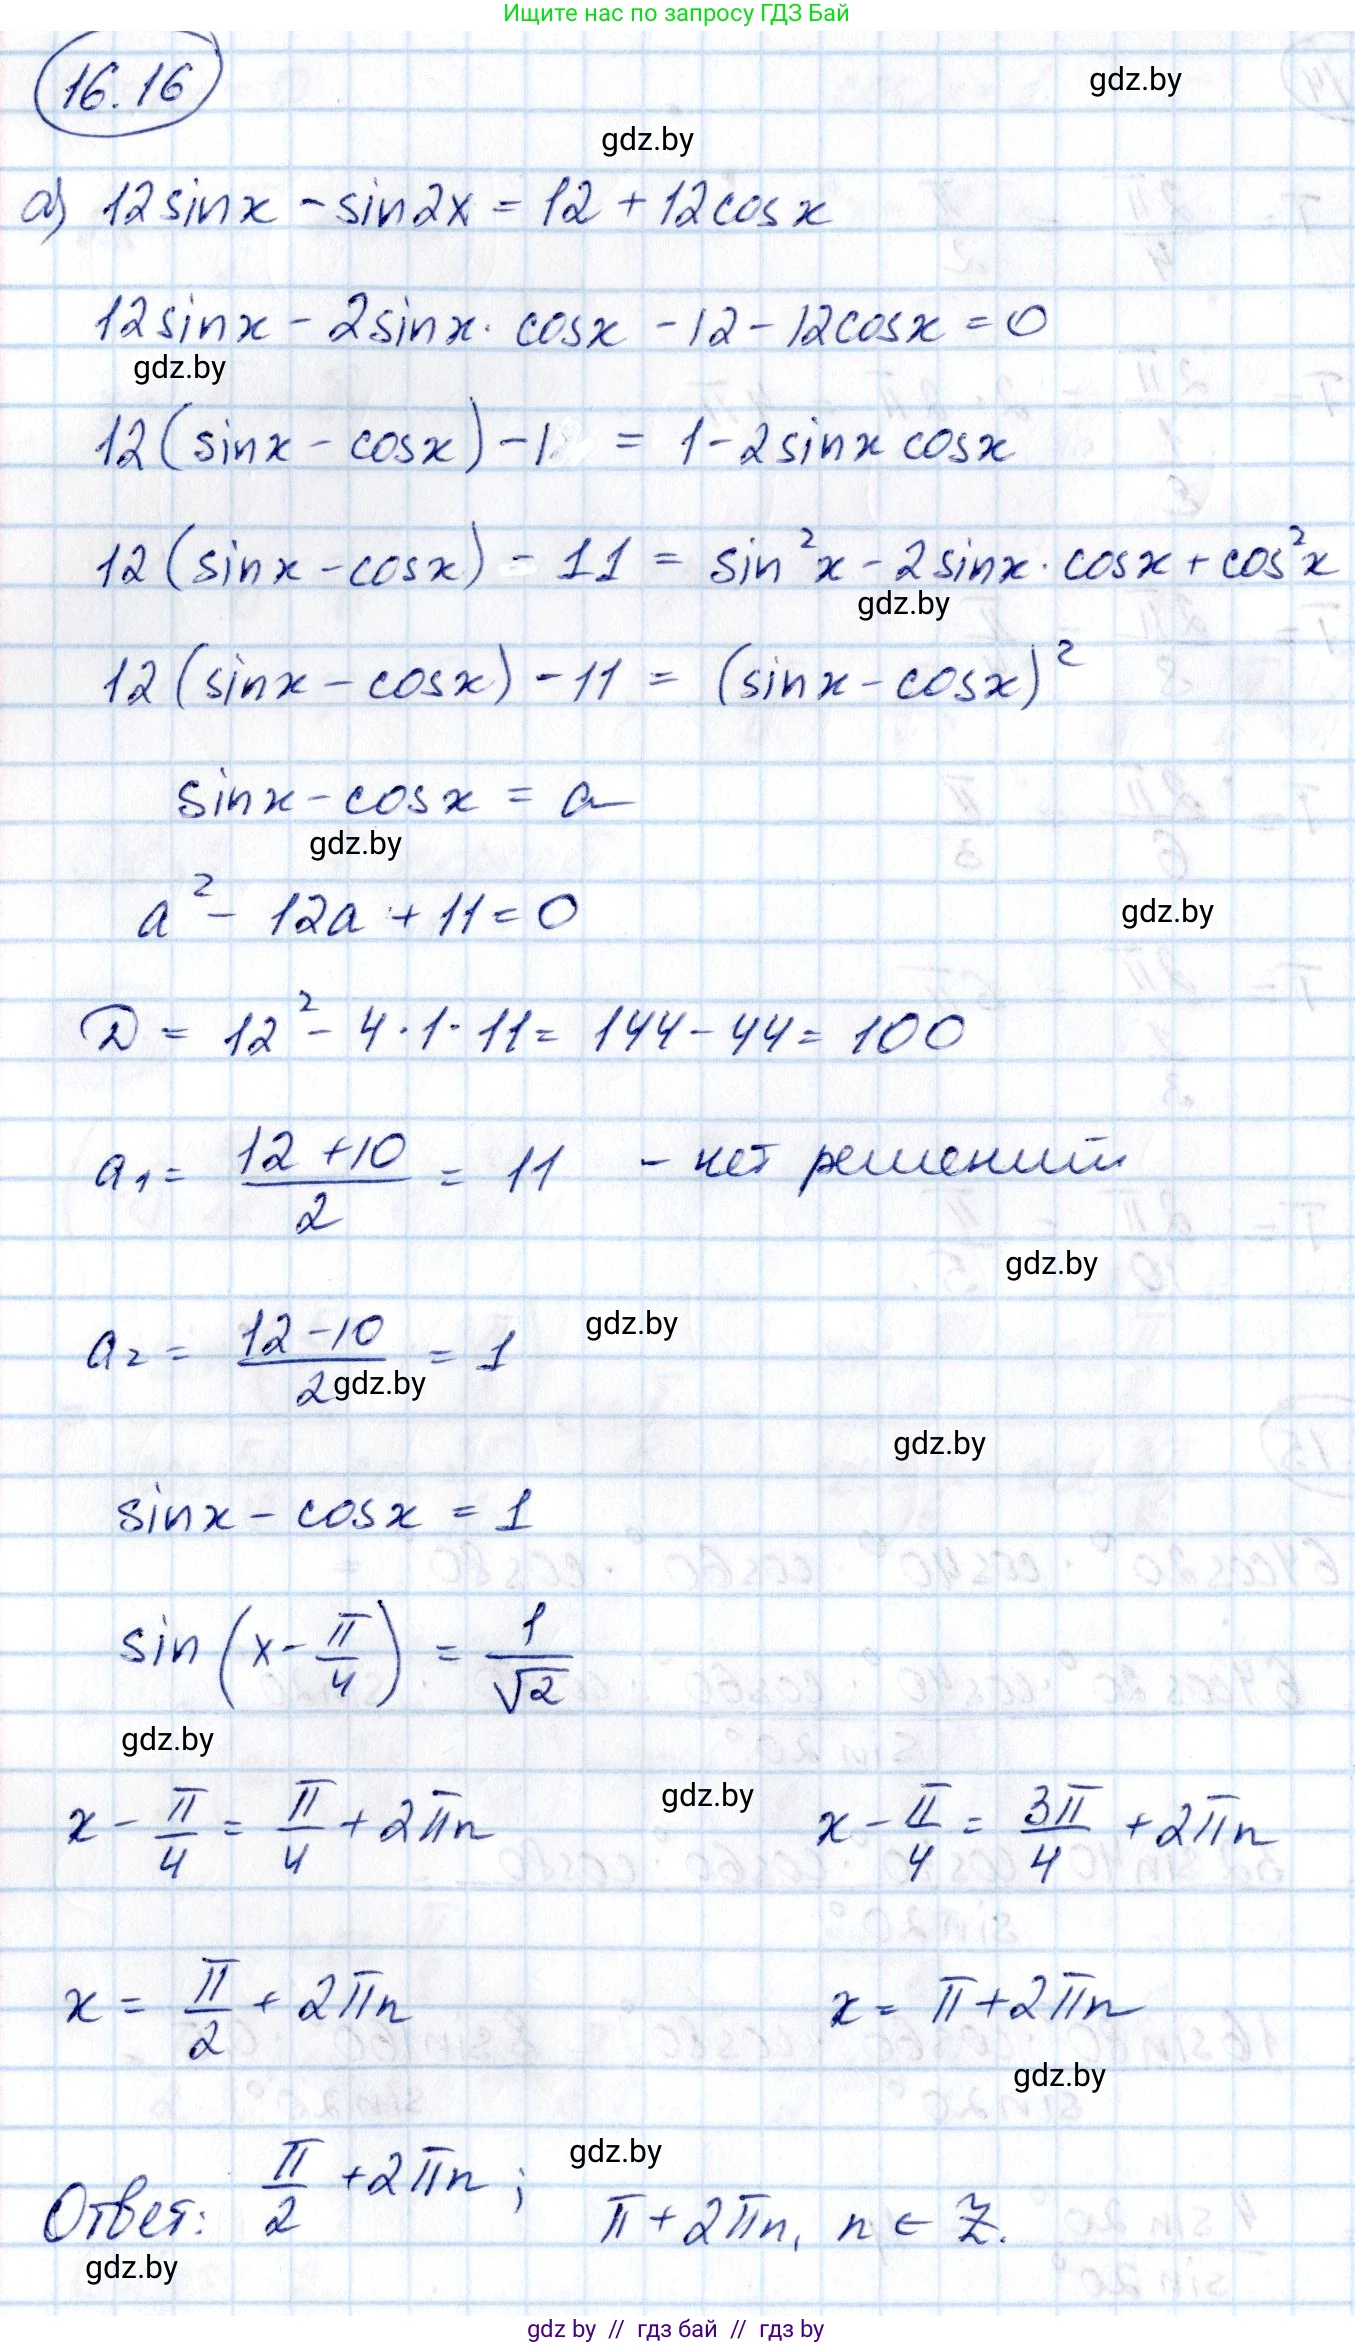 Ищите нас по запросу ГДЗ Бай
16.16
gdz.by
gdz.by
а) 12sinx - sin2x = 12 + 12cosx
12sinx - 2sinx · cosx - 12 - 12cosx = 0
gdz.by
12(sinx - cosx) - 1 = 1 - 2sinx cosx
12(sinx - cosx) - 11 = sin²x - 2sinx · cosx + cos²x
gdz.by
12(sinx - cosx) - 11 = (sinx - cosx)²
sinx - cosx = a
gdz.by
a² - 12a + 11 = 0
gdz.by
D = 12² - 4 · 1 · 11 = 144 - 44 = 100
a₁ = (12 + 10)/2 = 11 - нет решений
gdz.by
gdz.by
a₂ = (12 - 10)/2 = 1
gdz.by
gdz.by
sinx - cosx = 1
sin(x - π/4) = 1/√2
gdz.by
gdz.by
x - π/4 = π/4 + 2πn x - π/4 = 3π/4 + 2πn
x = π/2 + 2πn x = π + 2πn
gdz.by
gdz.by
Ответ: π/2 + 2πn; π + 2πn, n ∈ Z.
gdz.by
gdz.by // гдз бай // гдз by